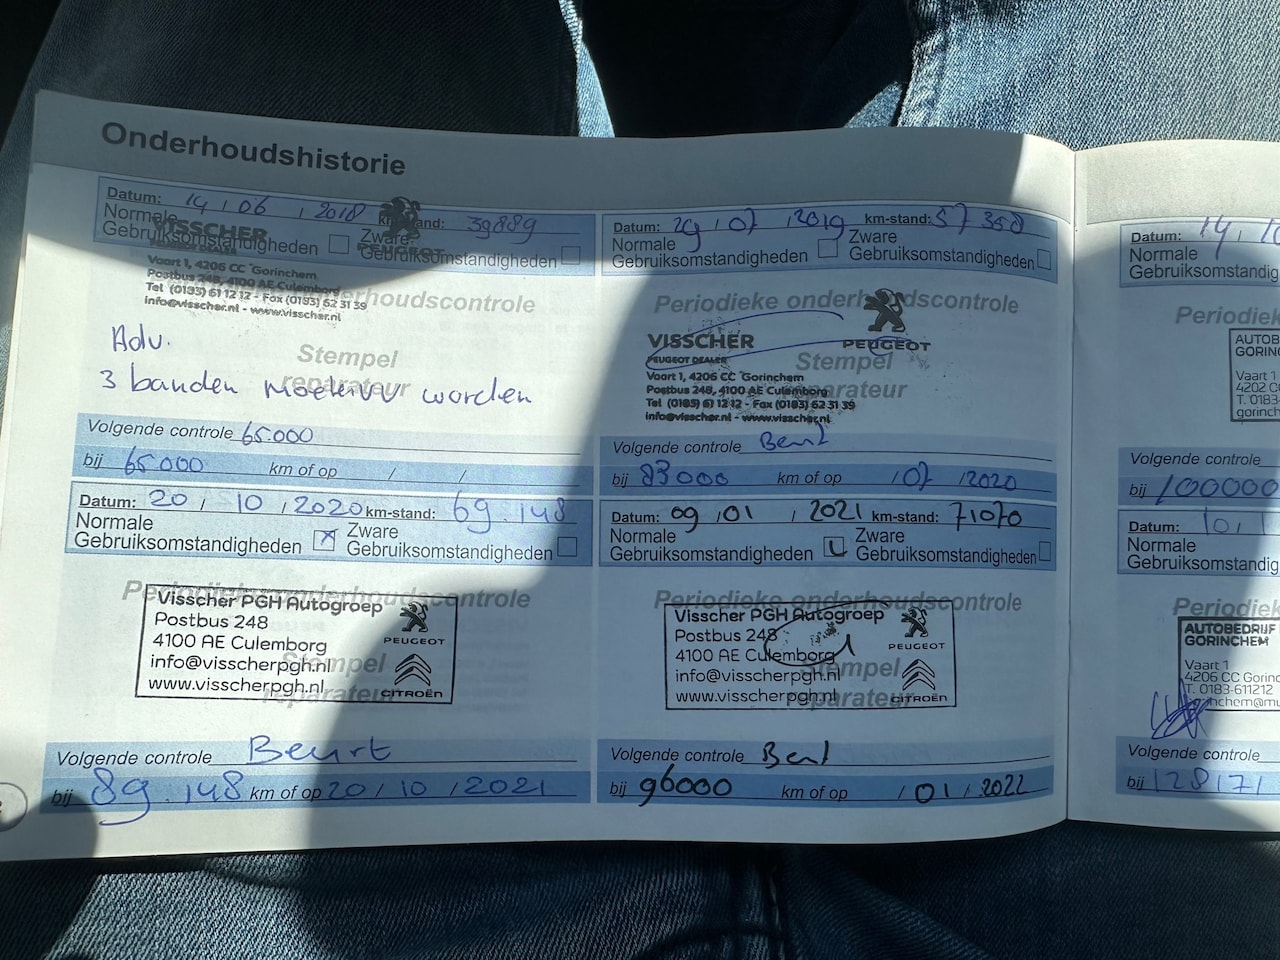 Onderhoudshistorie
Datum: 14 / 06 / 2018 km-stand: 39889
Normale
Gebruiksomstandigheden
Zware
Gebruiksomstandigheden
VISSCHER
PEUGEOT
Vaart 1, 4206 CC Gorinchem
Postbus 248, 4100 AE Culemborg
Tel (0183) 61 12 12 - Fax (0183) 62 31 39
info@visscher.nl - www.visscher.nl
onderhoudscontrole
Stempel
reparateur
Adv.
3 banden worden
Volgende controle 65.000
bij 65000 km of op / /
Datum: 29 / 07 / 2019 km-stand: 57358
Normale
Gebruiksomstandigheden
Zware
Gebruiksomstandigheden
Periodieke onderhoudscontrole
VISSCHER
PEUGEOT DEALER
PEUGEOT
Vaart 1, 4206 CC Gorinchem
Postbus 248, 4100 AE Culemborg
Tel (0183) 61 12 12 - Fax (0183) 62 31 39
info@visscher.nl - www.visscher.nl
Stempel
reparateur
Volgende controle Beurt
bij 83000 km of op / 07 / 2020
Datum: 20 / 10 / 2020 km-stand: 69.148
Normale
Gebruiksomstandigheden
Zware
Gebruiksomstandigheden
Periodieke onderhoudscontrole
Visscher PGH Autogroep
Postbus 248
4100 AE Culemborg
info@visscherpgh.nl
www.visscherpgh.nl
PEUGEOT
CITROËN
Stempel
reparateur
Volgende controle Beurt
bij 89.148 km of op 20 / 10 / 2021
Datum: 09 / 01 / 2021 km-stand: 71070
Normale
Gebruiksomstandigheden
Zware
Gebruiksomstandigheden
Periodieke onderhoudscontrole
Visscher PGH Autogroep
Postbus 248
4100 AE Culemborg
info@visscherpgh.nl
www.visscherpgh.nl
PEUGEOT
CITROËN
Stempel
reparateur
Volgende controle Beurt
bij 96000 km of op / 01 / 2022
Datum: 14 /
Normale
Gebruiksomstandig
Periodiek
AUTOB
GORINC
Vaart 1
4202 C
T. 0183-
gorinch
Volgende controle
bij 100000
Datum: 10 /
Normale
Gebruiksomstandig
Periodiek
AUTOBEDRIJF
GORINCHEM
Vaart 1
4206 CC Gorinc
T. 0183-611212
nchem@mu
Volgende controle
bij 128171